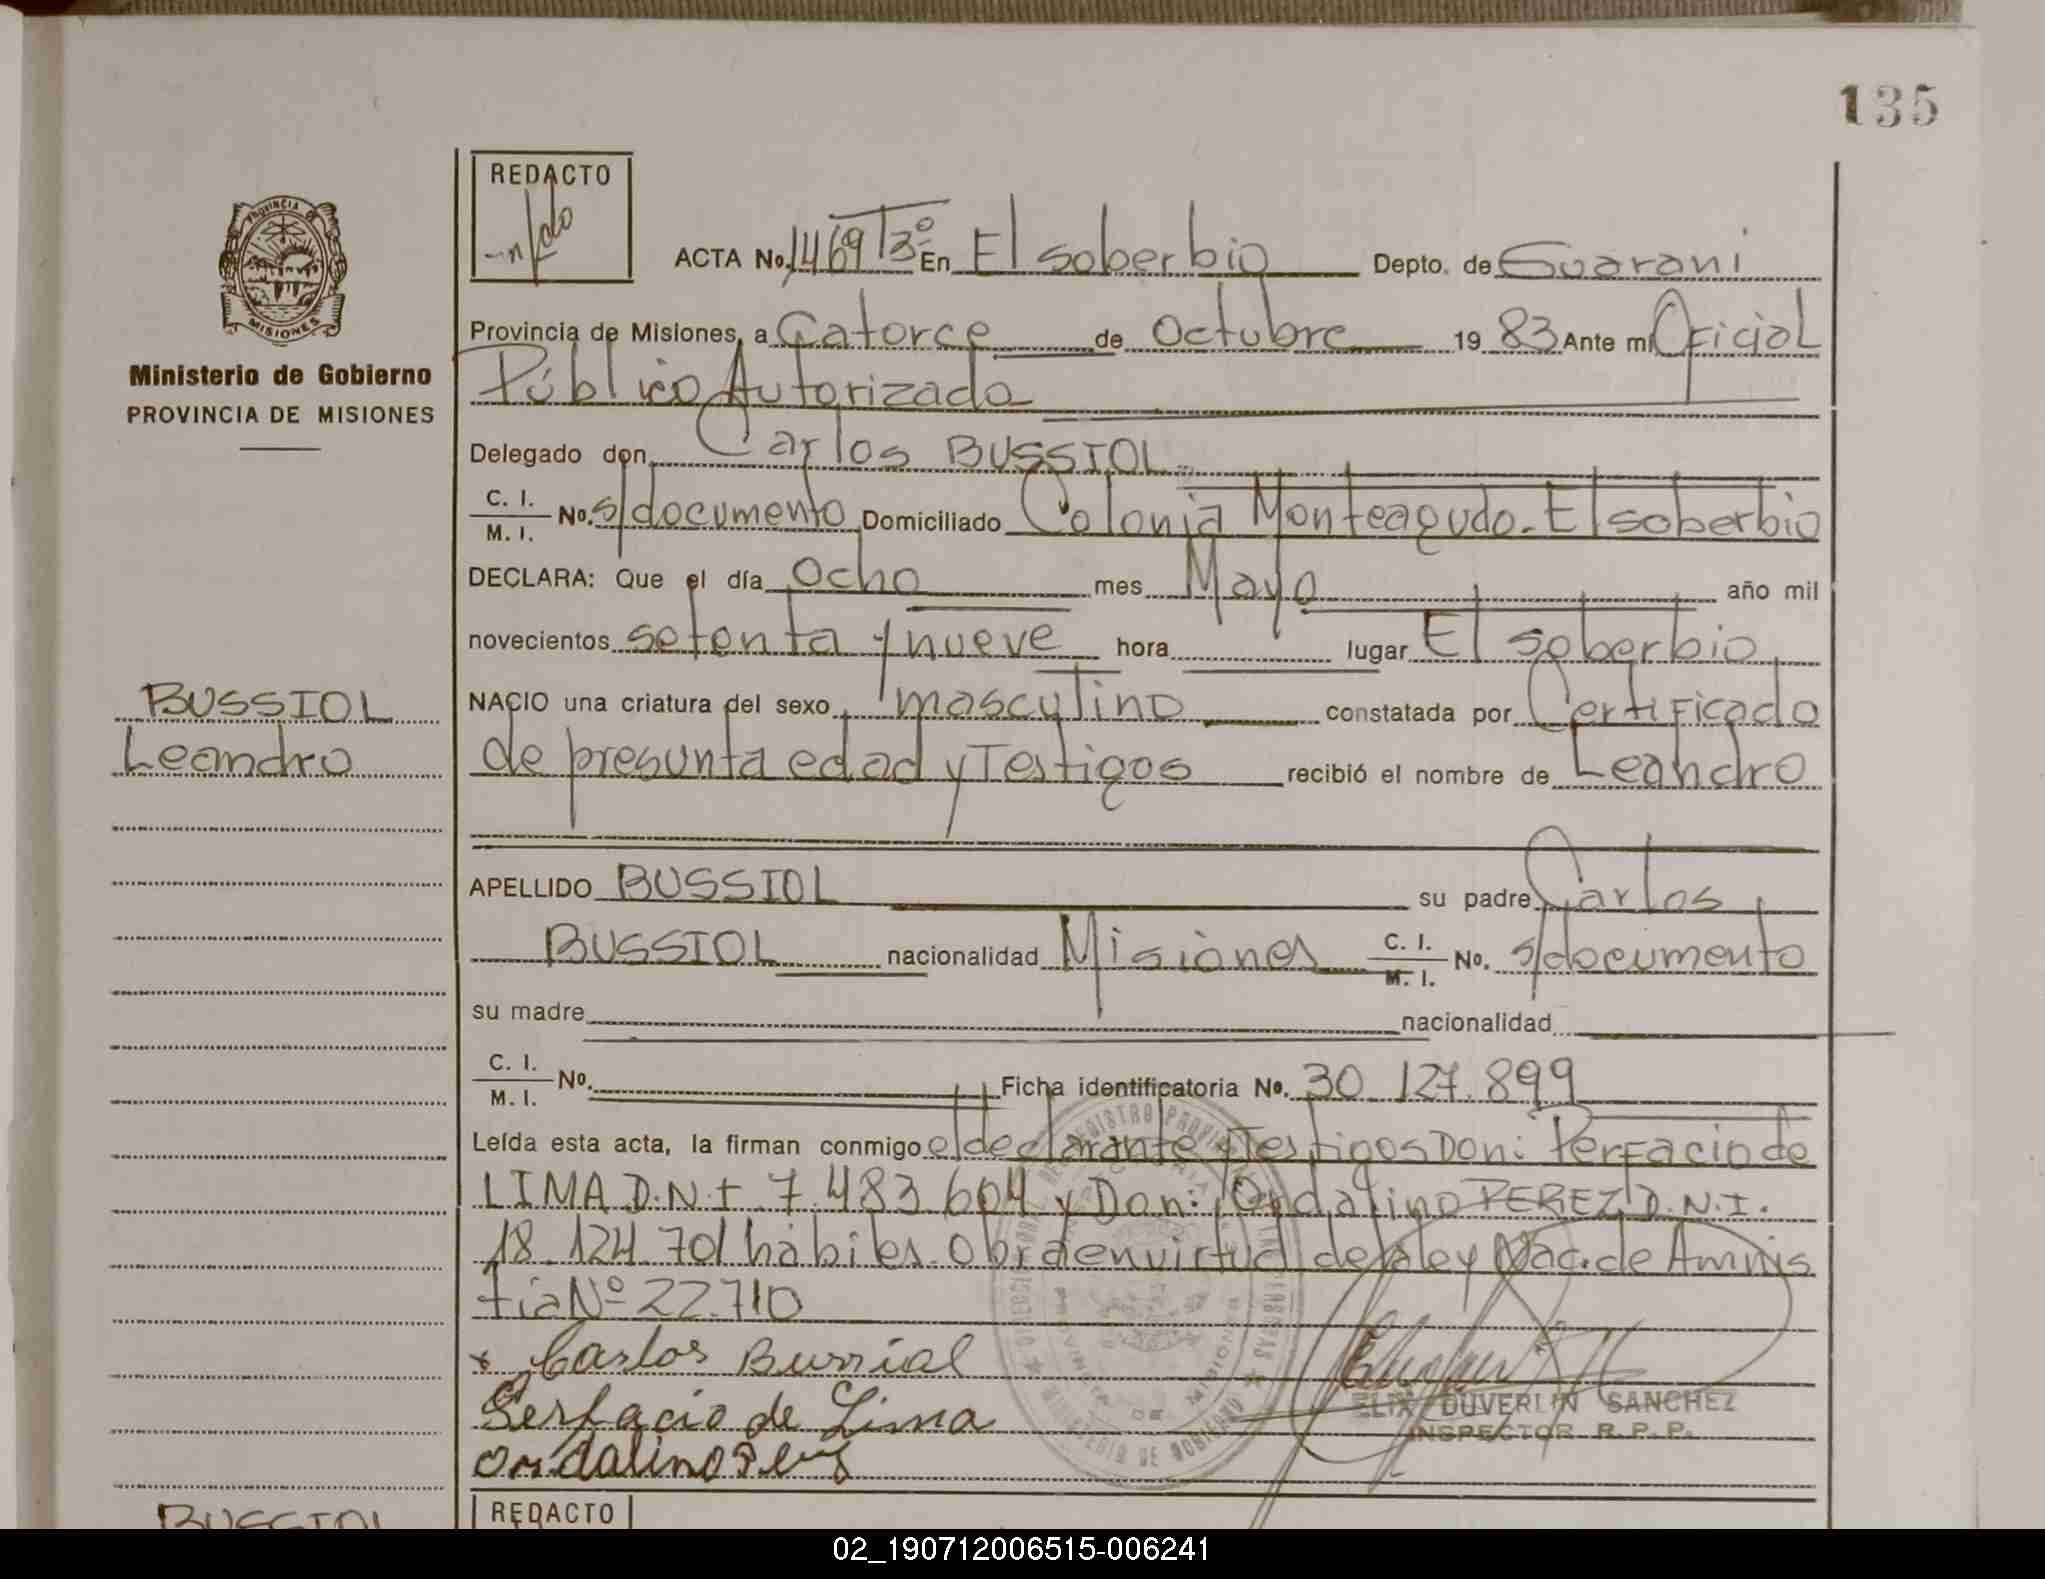 135
REDACTO
ACTA No. 1469 T3º En El soberbio Depto. de Guarani
Provincia de Misiones, a Catorce de Octubre 19 83 Ante mi Oficial
Público Autorizado
Ministerio de Gobierno
PROVINCIA DE MISIONES
Delegado don Carlos BUSSIOL
C. I.
M. I. No. s/documento Domiciliado Colonia Monteagudo. El soberbio
DECLARA: Que el día Ocho mes Mayo año mil
novecientos setenta y nueve hora lugar El soberbio
BUSSIOL
Leandro
NACIO una criatura del sexo masculino constatada por Certificado
de presunta edad y Testigos recibió el nombre de Leandro
APELLIDO BUSSIOL su padre Carlos
BUSSIOL nacionalidad Misiones C. I.
M. I. No. s/documento
su madre nacionalidad
C. I.
M. I. No. Ficha identificatoria No. 30.127.899
Leída esta acta, la firman conmigo el declarante y Testigos Don: Perfacio de
LIMA D.N.I. 7.483.604 y Don: Ordalino PEREZ D.N.I.
18.124.701 hábiles. Obra en virtud de la ley Nac. de Amnis
tia Nº 22.710
Carlos Bussiol
Perfacio de Lima
ordalino Perez
DUVERLIN SANCHEZ
INSPECTOR R. P. P.
BUSSIOL
REDACTO
02_190712006515-006241